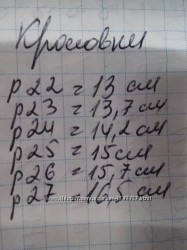 Кросовки
р 22 = 13 см
р 23 = 13,7 см
р 24 = 14,2 см
р 25 = 15 см
р 26 = 15,7 см
р 27 = 16,5 см